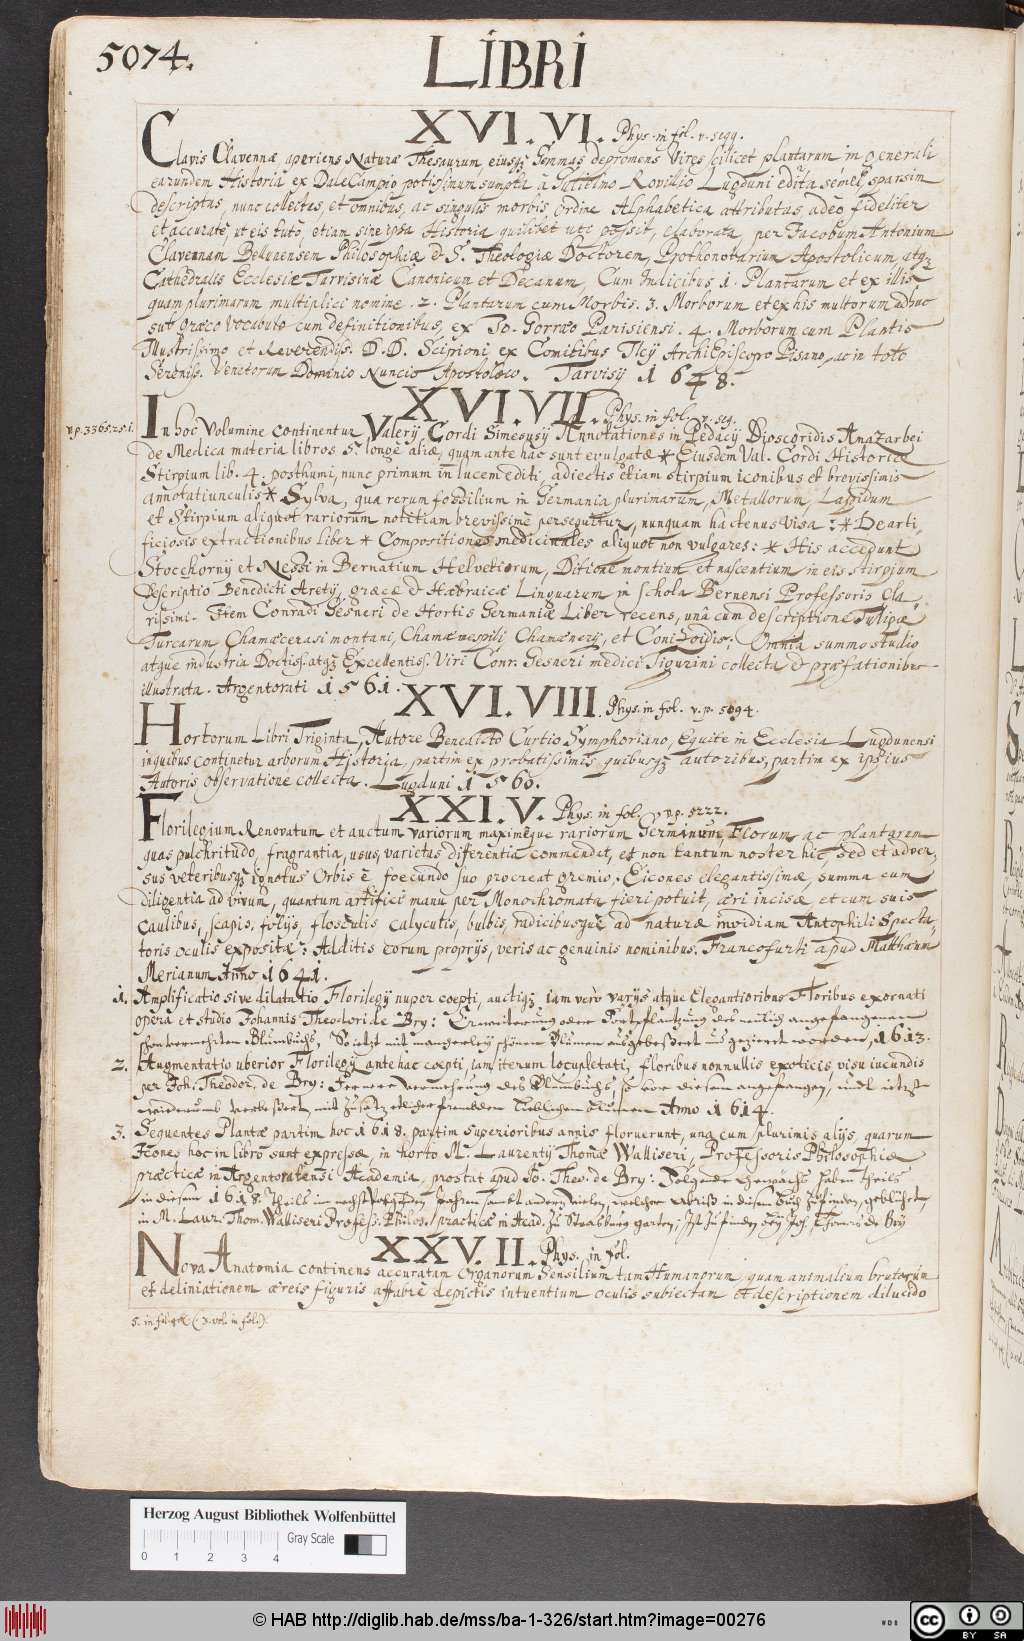 5074.
LIBRI
XVI. VI. Phys. in fol. v. seqq.
Clavis Clavennæ aperiens Naturæ Thesaurum, eiusqz Gemmas depromens Vires scilicet plantarum in generali
earundem Historia ex DaleCampio potissimum sumpta à Gulielmo Rovilio Lugduni edita semel, sparsim
descriptas, nunc collectas, et omnibus, ac singulis morbis, ordine Alphabetica attributas, adeo fideliter
et accuratè, ut eis tutò, etiam sine ipsa Historia quilibet uti possit, elaborata, per Jacobum Antonium
Clavennam Bellunensem Philosophiæ & S. Theologiæ Doctorem, Prothonotarium Apostolicum, atqz
Cathedralis Ecclesiæ Tarvisinæ Canonicum et Decanum, Cum Indicibus, 1. Plantarum et ex illis
quam plurimarum multiplici nomine. 2. Plantarum cum Morbis. 3. Morborum et ex his multorum adhuc
sub græco vocabulo cum definitionibus, ex Jo. Gorræo Parisiensi. 4. Morborum cum Plantis
Illustrissimo et Reverendiss. D.D. Scipioni, ex Comitibus Ilcij ArchiEpiscopo Pisano, ac in toto
Sereniss. Venetorum Dominio Nuncio Apostolico. Tarvisij 1648.
XVI. VII. Phys. in fol. v. seq.
v. p. 3365. 25. 1.
In hoc Volumine continentur Valerij Cordi Simesusij Annotationes in Pedacij Dioscoridis Anazarbei
de Medica materia libros 5. longè aliæ, quam ante hac sunt evulgatæ * Eiusdem Val. Cordi Historiæ
Stirpium lib. 4. posthumi, nunc primum in lucem editi, adiectis etiam stirpium iconibus et brevissimis
annotatiunculis * Sylva, qua rerum fossilium in Germania plurimarum, Metallorum, Lapidum
et Stirpium aliquot rariorum notitiam brevissimè persequitur, nunquam hactenus visa: * De arti,
ficiosis extractionibus liber * Compositiones medicinales aliquot non vulgares: * His accedunt
Stocchornij et Nessi in Bernatium Helvetiorum, Ditione montium et nascentium in eis stirpium
descriptio Benedicti Aretij, græcæ & Hæbraicæ Linguarum in schola Bernensi Professoris cla,
rissimi. Item Conradi Gesneri de Hortis Germaniæ Liber recens, unà cum descriptione Tulipæ
Turcarum Chamæcerasi montani, Chamæmespili Chamænerij, et Conizoidis: Omnia summo studio
atque industria Doctiss. atqz Excellentiss. Viri Conr. Gesneri medici Tigurini collecta & præfationibus
illustrata. Argentorati 1561.
XVI. VIII. Phys. in fol. v. p. 5094.
Hortorum Libri Triginta, Autore Benedicto Curtio Symphoriano, Equite in Ecclesia Lugdunensi
in quibus continetur arborum Historia, partim ex probatissimis quibusqz autoribus, partim ex ipsius
Autoris observatione collecta. Lugduni 1560.
XXI. V. Phys. in fol. v. p. 5222.
Florilegium Renovatum et auctum variorum maximeque rariorum Germinum, Florum ac plantarum
quas pulchritudo, fragrantia, usus, varietas differentia commendet, et non tantum noster hic, sed et adver,
sus veteribusqz ignotus Orbis è foecundo suo procreat gremio; Eicones elegantissimæ, summa cum
diligentia ad vivum, quantum artifici manu per Monochromata fieri potuit, æri incisæ, et cum suis
caulibus, scapis, folijs, flosculis calycutis, bulbis, radicibusque ad naturæ invidiam Antophili Specta,
toris oculis expositæ: Additis eorum proprijs, veris ac genuinis nominibus. Francofurti apud Matthæum
Merianum Anno 1641.
1. Amplificatio sive dilatatio Florilegij nuper coepti, auctiqz iam verò varijs atque Elegantioribus Floribus exornati
opera et studio Johannis Theodori de Bry: Erweiterung oder Fortpflantzung des neulich angefangenen
schon vermehrten Blumbuchs, So ietzt mit mancherley schönen Blumen außgebessert und gezieret worden, 1613.
2. Augmentatio uberior Florilegij antehac coepti, iam iterum locupletati, floribus nonnullis exoticis, visu iucundis
per Joh. Theodor. de Bry: Fernere vermehrung des Blumbuchs, so vor diesem angefangen, und ietzt
wiederumb verbessert, mit Zusatz etlicher frembden lieblichen blumen Anno 1614.
3. Sequentes Plantæ partim hoc 1618. partim superioribus annis floruerunt, una cum plurimis alijs, quarum
Icones hoc in libro sunt expressæ, in horto M. Laurentij Thomæ Walliseri, Professoris Philosophiæ
practicæ in Argentoratensi Academia, prostat apud Jo. Theo. de Bry: Folgende Gewächs haben theils
in diesem 1618. Theils im nechst verschienen Jahren sambt andern vielen, welcher Abriß in diesem buch zu finden, geblühet,
in M. Laur. Thom. Walliseri Profess. Philos. practicæ in Acad. zu Straßburg garten; Ist zu finden bey Joh. Theodor de Bry
XXV. II. Phys. in fol.
Nova Anatomia continens accuratam Organorum Sensilium tam Humanorum quam animalium brutorum
et deliniationem æreis figuris affabrè depictis intuentium oculis subiectam et descriptionem dilucido
5. in fol. (3. vol. in fol.)
Herzog August Bibliothek Wolfenbüttel
Gray Scale
0 1 2 3 4
© HAB http://diglib.hab.de/mss/ba-1-326/start.htm?image=00276
WDB
CC BY SA